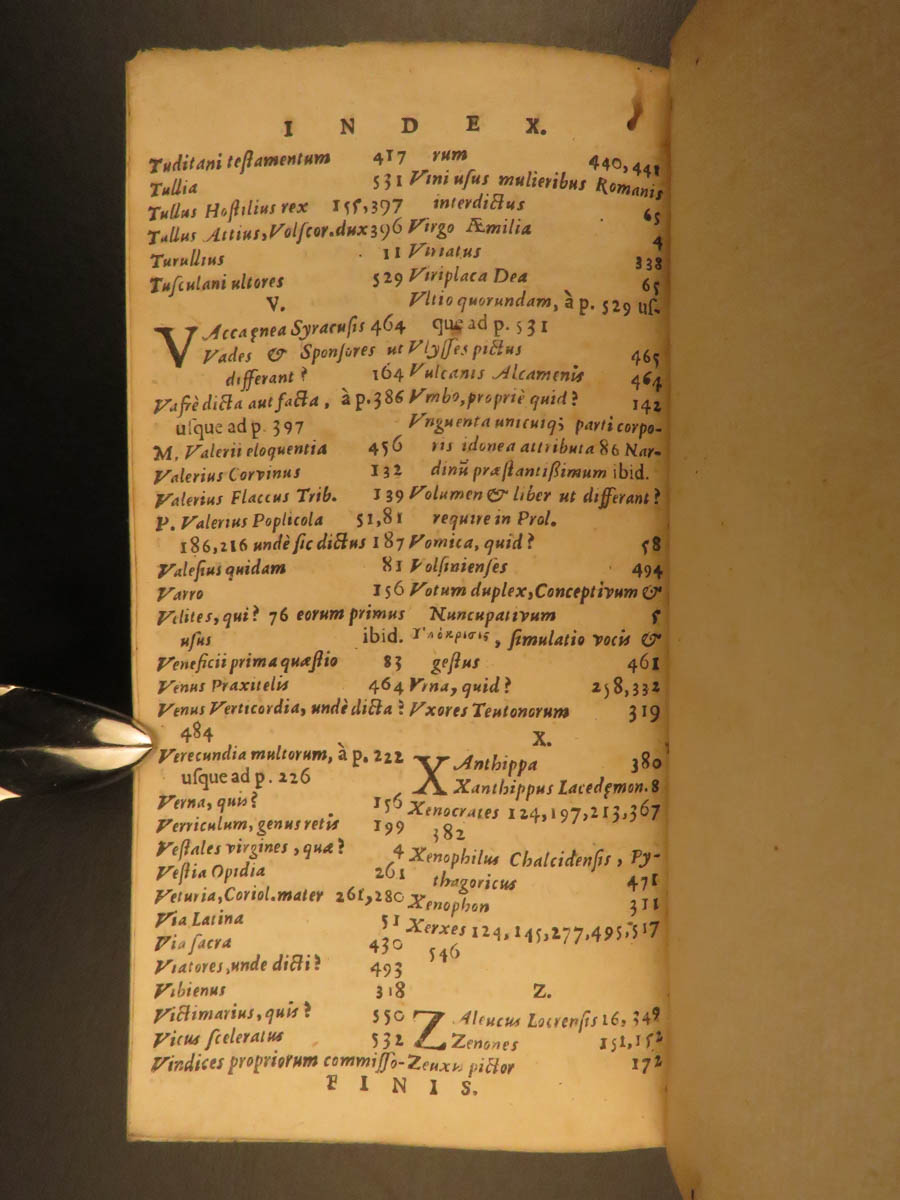 INDEX.
Tuditani testamentum 417
Tullia 531
Tullus Hostilius rex 155,397
Tullus Attius, Volscor. dux 396
Turullius 11
Tusculani ultores 529
V.
VAccaęnea Syracusis 464
Vades & Sponsores ut
differant? 164
Vafrè dicta aut facta, à p. 386
usque ad p. 397
M. Valerii eloquentia 456
Valerius Corvinus 132
Valerius Flaccus Trib. 139
P. Valerius Poplicola 51,81
186,216 undè sic dictus 187
Valesius quidam 81
Varro 156
Velites, qui? 76 eorum primus
usus ibid.
Veneficii prima quæstio 83
Venus Praxitelis 464
Venus Verticordia, undè dicta?
484
Verecundia multorum, à p. 222
usque ad p. 226
Verna, quis? 156
Verriculum, genus retis 199
Vestales virgines, quæ? 4
Vestia Opidia 261
Veturia, Coriol. mater 261,280
Via Latina 51
Via sacra 430
Viatores, unde dicti? 493
Vibienus 318
Victimarius, quis? 550
Vicus sceleratus 532
Vindices propriorum commisso-
rum 440,441
Vini usus mulieribus Romanis
interdictus 65
Virgo Æmilia 4
Viriatus 338
Viriplaca Dea 65
Vltio quorundam, à p. 529 us-
que ad p. 531
Vlysses pictus 465
Vulcanis Alcamenis 464
Vmbo, propriè quid? 142
Vnguenta unicuiq; parti corpo-
ris idonea attributa 86 Nar-
dinū præstantissimum ibid.
Volumen & liber ut differant?
require in Prol.
Vomica, quid? 58
Volsinienses 494
Votum duplex, Conceptivum &
Nuncupativum 5
Ὑπόκρισις, simulatio vocis &
gestus 461
Vrna, quid? 258,332
Vxores Teutonorum 319
X.
XAnthippa 380
Xanthippus Lacedęmon. 8
Xenocrates 124,197,213,367
382
Xenophilus Chalcidensis, Py-
thagoricus 471
Xenophon 311
Xerxes 124,145,277,495,517
546
Z.
ZAleucus Locrensis 16, 349
Zenones 151,152
Zeuxis pictor 172
FINIS.